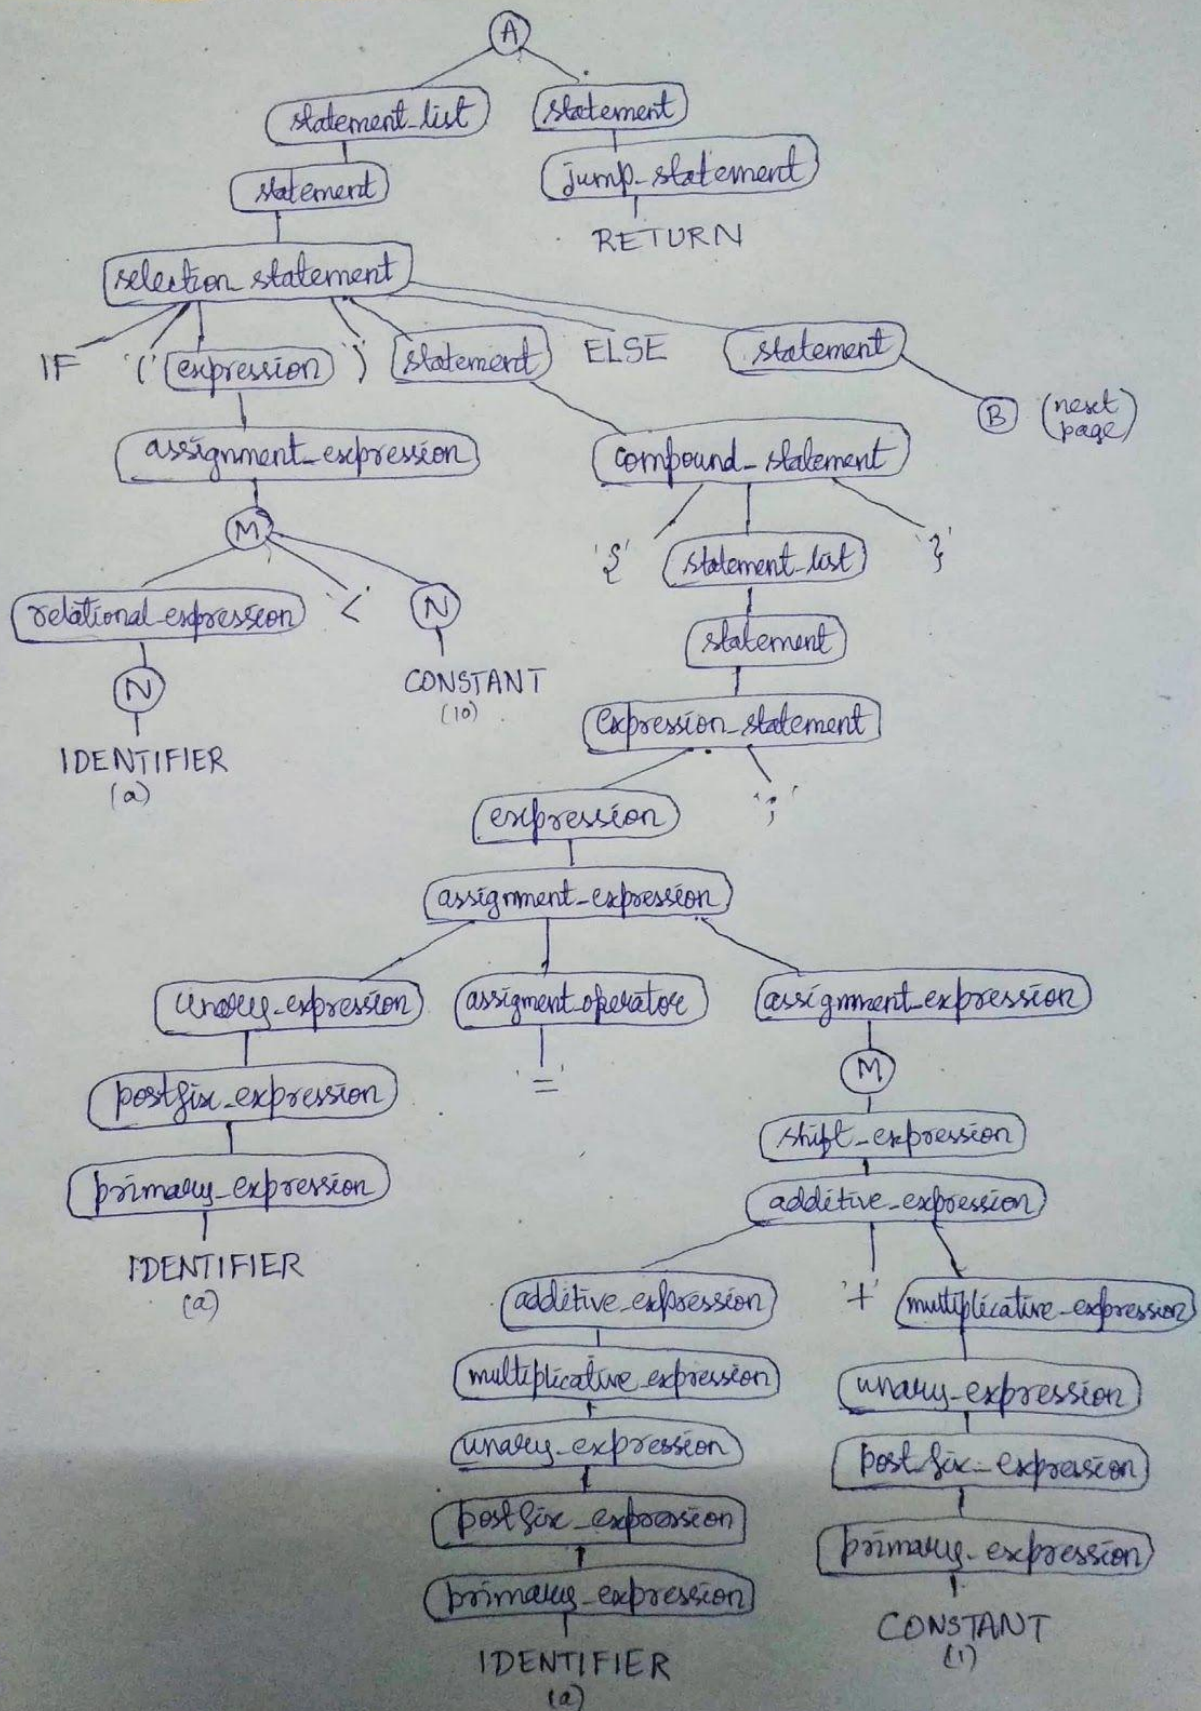 A
statement_list statement
statement jump_statement
RETURN
selection_statement
IF '(' expression ')' statement ELSE statement
B (next page)
assignment_expression compound_statement
M
'{' statement_list '}'
relational_expression '<' N
statement
N CONSTANT
(10)
expression_statement
IDENTIFIER
(a)
expression ';'
assignment_expression
unary_expression assigment_operator assignment_expression
postfix_expression '=' M
shift_expression
primary_expression additive_expression
IDENTIFIER
(a)
additive_expression '+' multiplicative_expression
multiplicative_expression unary_expression
unary_expression postfix_expression
postfix_expression
primary_expression primary_expression
CONSTANT
(1)
IDENTIFIER
(a)